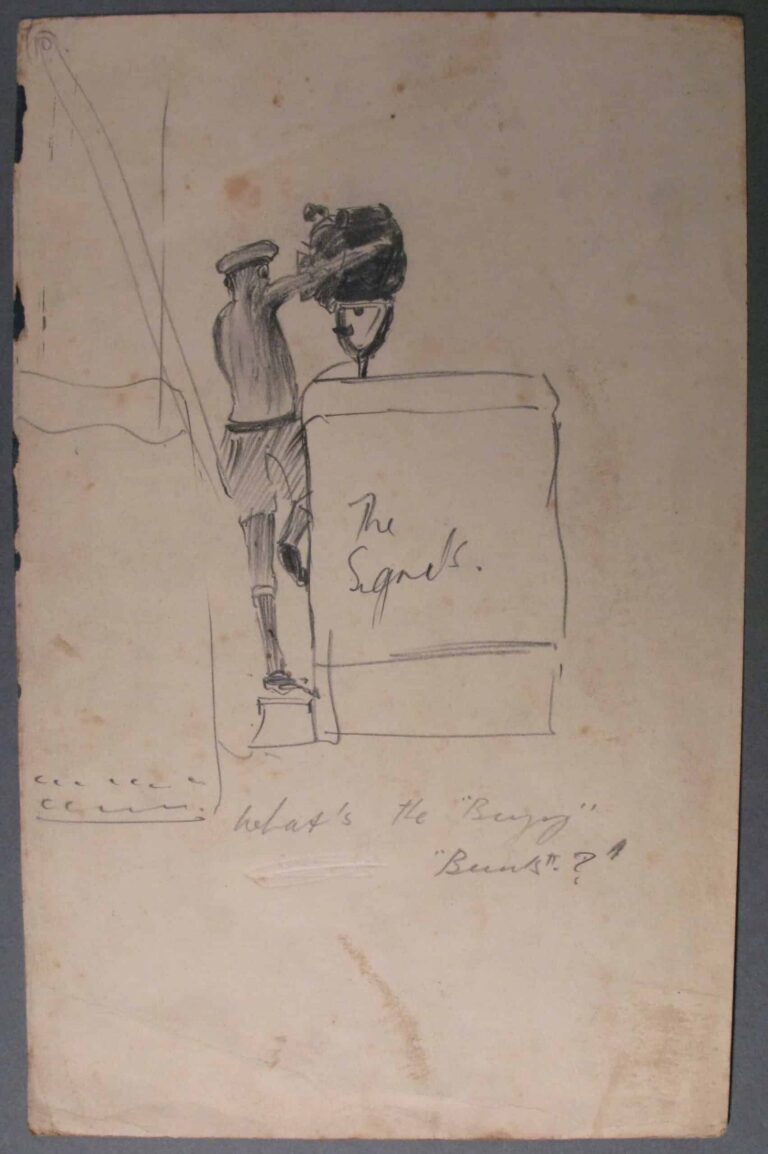 The
Signals.
What's the "Buzz"
"Bunts".?"